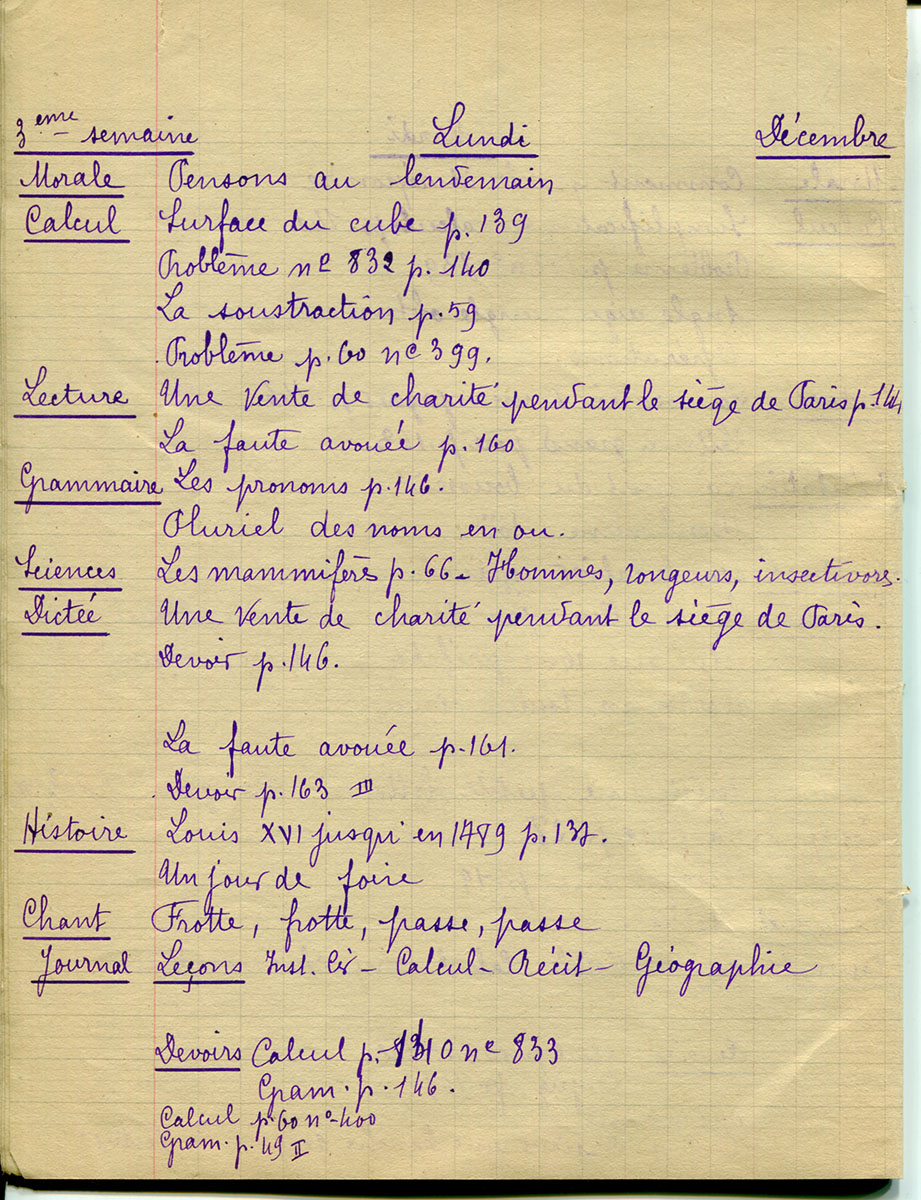 3eme semaine Lundi Décembre
Morale Pensons au lendemain
Calcul Surface du cube p. 139
Problème no 832 p. 140
La soustraction p. 59
Problème p. 60 no 399.
Lecture Une vente de charité pendant le siège de Paris p. 144
La faute avouée p. 160
Grammaire Les pronoms p. 146.
Pluriel des noms en ou.
Sciences Les mammifères p. 66 - Hommes, rongeurs, insectivores.
Dictée Une vente de charité pendant le siège de Paris.
Devoir p. 146.
La faute avouée p. 161.
Devoir p. 163 III
Histoire Louis XVI jusqu'en 1789 p. 137.
Un jour de foire
Chant Frotte, frotte, passe, passe
Journal Leçons Inst. Civ - Calcul - Récit - Géographie
Devoirs Calcul p. 140 no 833
Gram. p. 146.
Calcul p. 60 no 400
Gram. p. 49 II